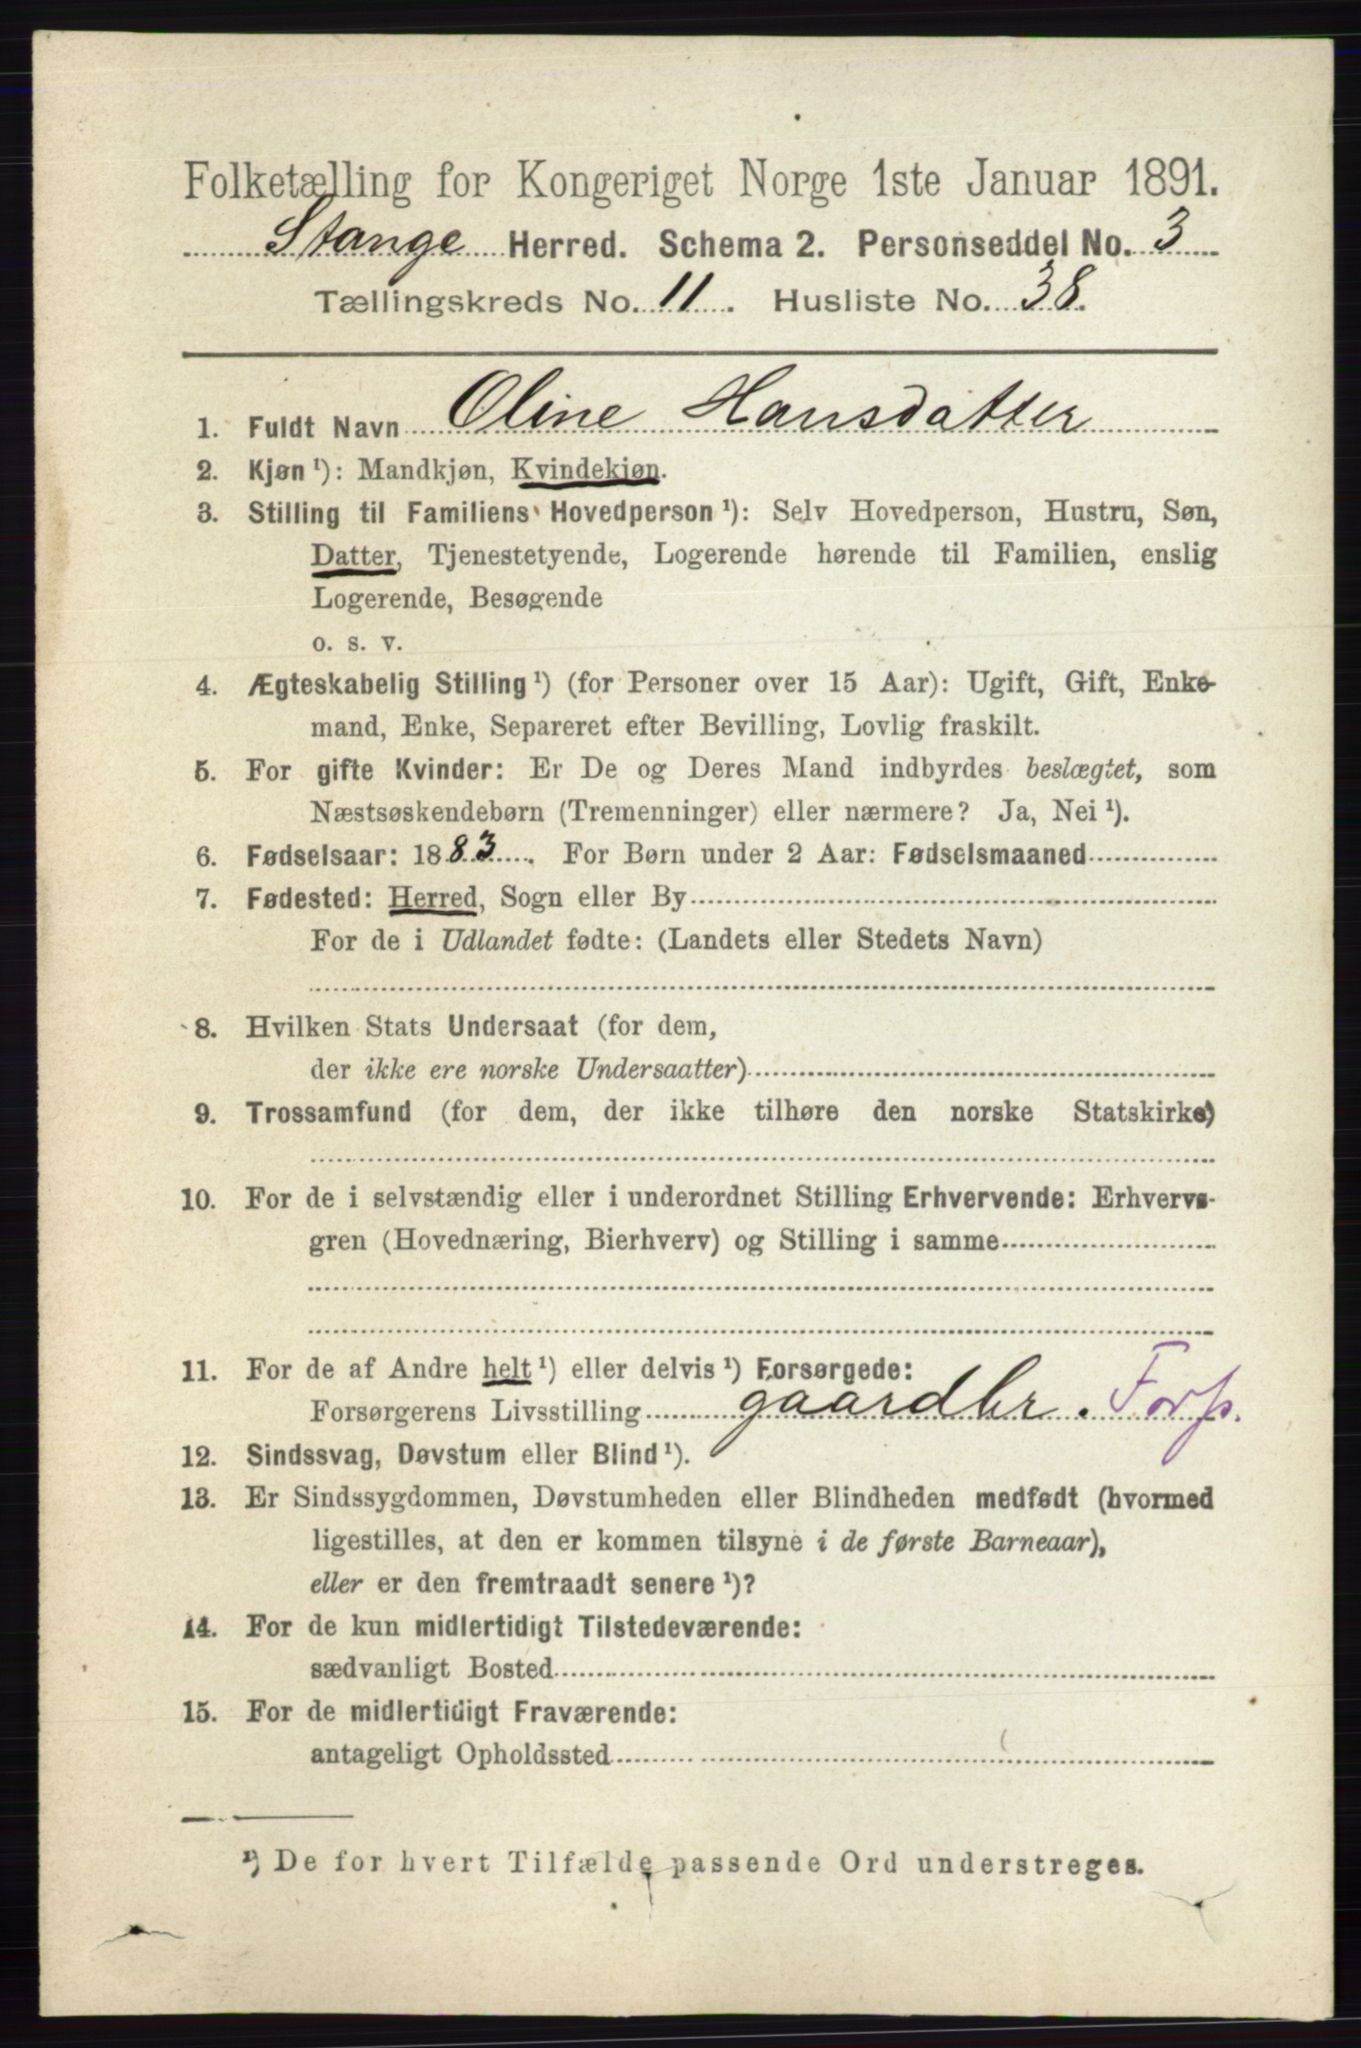 Folketælling for Kongeriget Norge 1ste Januar 1891.
Stange Herred. Schema 2. Personseddel No. 3
Tællingskreds No. 11. Husliste No. 38.
1. Fuldt Navn Oline Hansdatter
2. Kjøn ¹): Mandkjøn, Kvindekjøn.
3. Stilling til Familiens Hovedperson ¹): Selv Hovedperson, Hustru, Søn,
Datter, Tjenestetyende, Logerende hørende til Familien, enslig
Logerende, Besøgende
o. s. v.
4. Ægteskabelig Stilling ¹) (for Personer over 15 Aar): Ugift, Gift, Enke-
mand, Enke, Separeret efter Bevilling, Lovlig fraskilt.
5. For gifte Kvinder: Er De og Deres Mand indbyrdes beslægtet, som
Næstsøskendebørn (Tremenninger) eller nærmere? Ja, Nei ¹).
6. Fødselsaar: 1883. For Børn under 2 Aar: Fødselsmaaned
7. Fødested: Herred, Sogn eller By
For de i Udlandet fødte: (Landets eller Stedets Navn)
8. Hvilken Stats Undersaat (for dem,
der ikke ere norske Undersaatter)
9. Trossamfund (for dem, der ikke tilhøre den norske Statskirke)
10. For de i selvstændig eller i underordnet Stilling Erhvervende: Erhvervs-
gren (Hovednæring, Bierhverv) og Stilling i samme
11. For de af Andre helt ¹) eller delvis ¹) Forsørgede:
Forsørgerens Livsstilling gaardbr. Forp.
12. Sindssvag, Døvstum eller Blind ¹).
13. Er Sindssygdommen, Døvstumheden eller Blindheden medfødt (hvormed
ligestilles, at den er kommen tilsyne i de første Barneaar),
eller er den fremtraadt senere ¹)?
14. For de kun midlertidigt Tilstedeværende:
sædvanligt Bosted
15. For de midlertidigt Fraværende:
antageligt Opholdssted
¹) De for hvert Tilfælde passende Ord understreges.